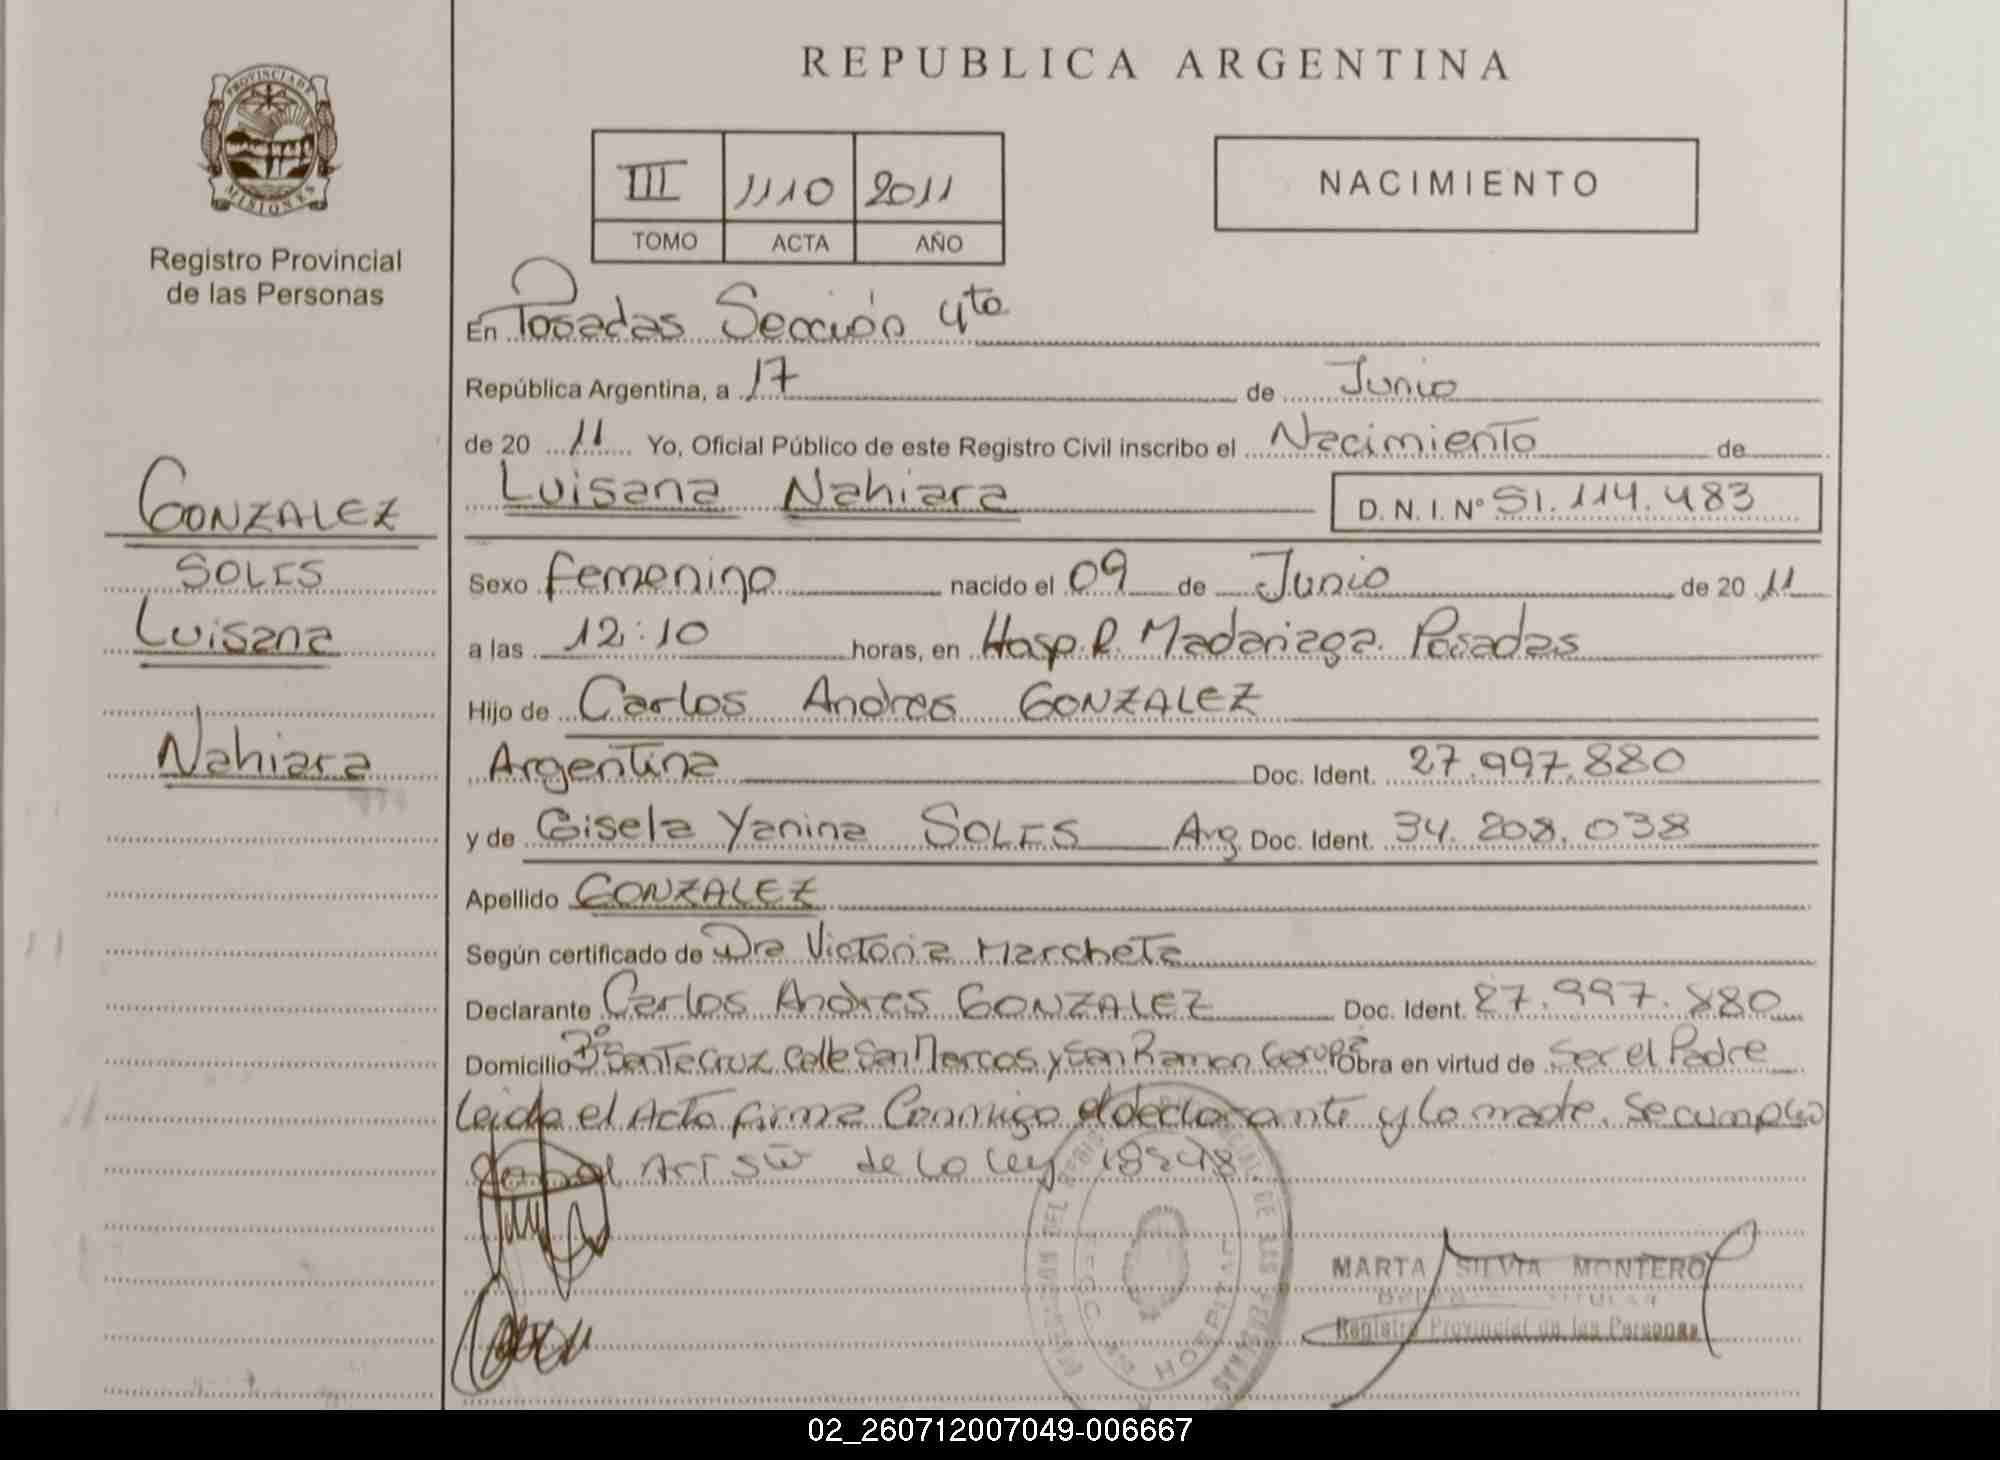 REPUBLICA ARGENTINA
PROVINCIA DE
MISIONES
Registro Provincial
de las Personas
III 1110 2011
TOMO ACTA AÑO
NACIMIENTO
En Posadas Sección 4ta
República Argentina, a 17 de Junio
de 2011 Yo, Oficial Público de este Registro Civil inscribo el Nacimiento de
Luisana Nahiara D. N. I. Nº 51.114.483
GONZALEZ
SOLIS
Luisana
Nahiara
Sexo femenino nacido el 09 de Junio de 2011
a las 12:10 horas, en Hosp. R. Madariaga. Posadas
Hijo de Carlos Andres GONZALEZ
Argentina Doc. Ident. 27.997.880
y de Gisela Yanina SOLIS Arg. Doc. Ident. 34.208.038
Apellido GONZALEZ
Según certificado de Dra Victoria Marcheta
Declarante Carlos Andres GONZALEZ Doc. Ident. 27.997.880
Domicilio Bº Santa Cruz Calle San Marcos y San Ramon Garupa Obra en virtud de Ser el Padre
Leida el Acta firma Conmigo el declarante y la madre. Se cumplio
Art de la Ley 18248.
MARTA SILVIA MONTERO
TITULAR
Registro Provincial de las Personas
02_260712007049-006667